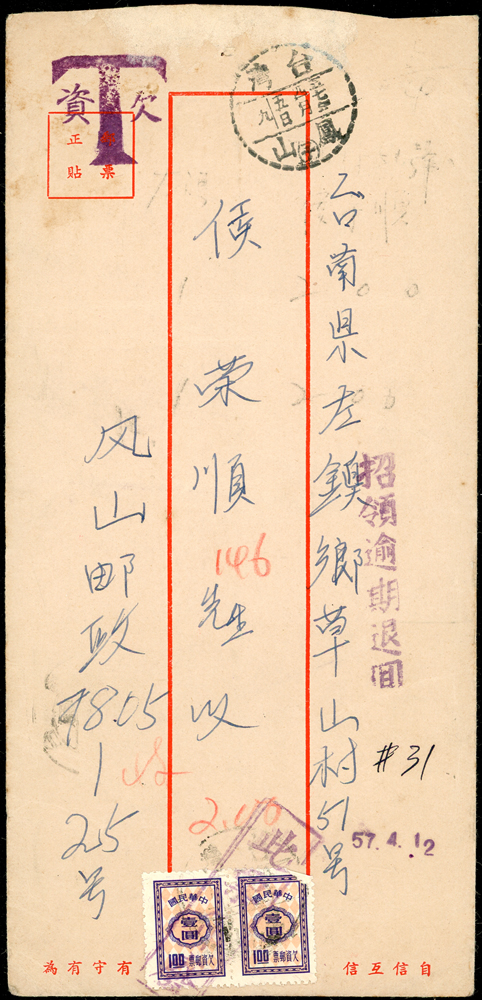 欠資
T
郵票
正貼
台灣
鳳山
台南県左鎮鄉草山村51号
侯荣順先生以
146
凤山邮政78.05
1
25号
2.00
招領逾期退回
#31
57.4.12
此
中華民國
壹圓
100
欠資郵票
中華民國
壹圓
100
欠資郵票
自信互信
有守有為